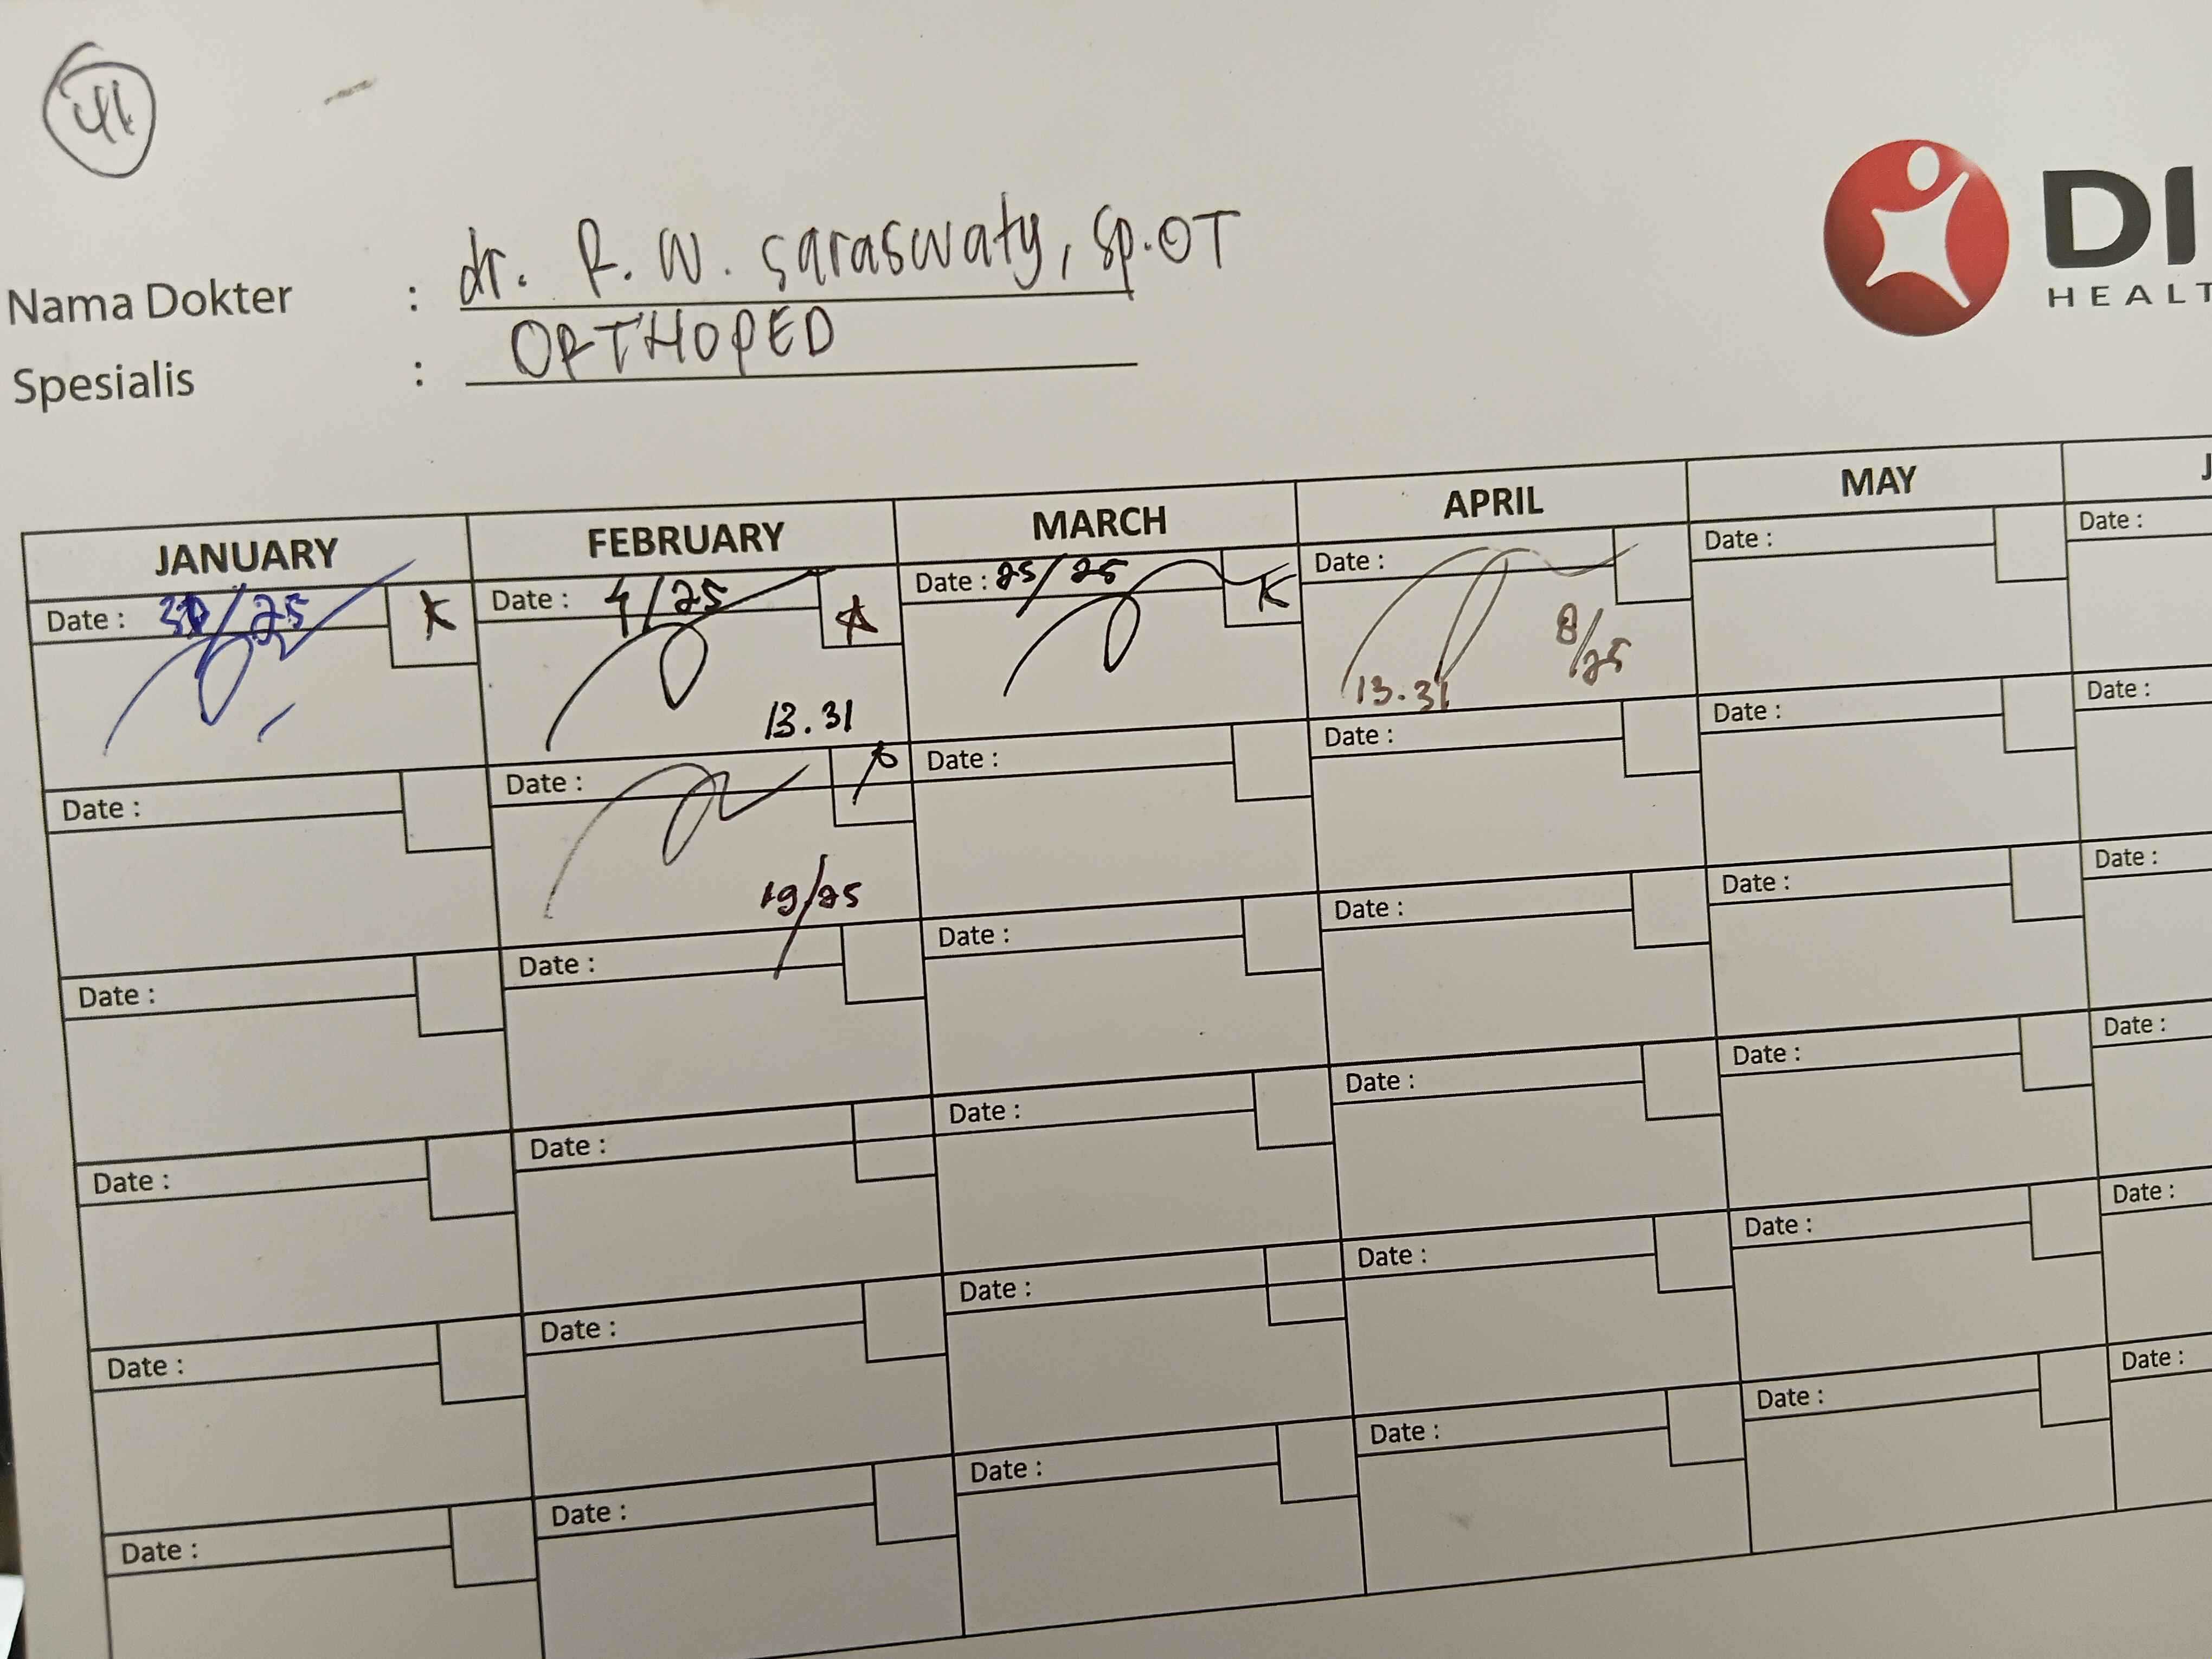 41
dr. R. W. Saraswaty, Sp.OT
Nama Dokter :
ORTHOPED
Spesialis :
DI
HEALT
JANUARY FEBRUARY MARCH APRIL MAY J
Date : /25 Date : 4/25 Date : 25/25 K Date : Date : Date :
8/25
13.31 13.31
Date : Date : Date : Date : Date : Date :
19/25
Date : Date : Date : Date : Date : Date :
Date : Date : Date : Date : Date : Date :
Date : Date : Date : Date : Date : Date :
Date : Date : Date : Date : Date : Date :